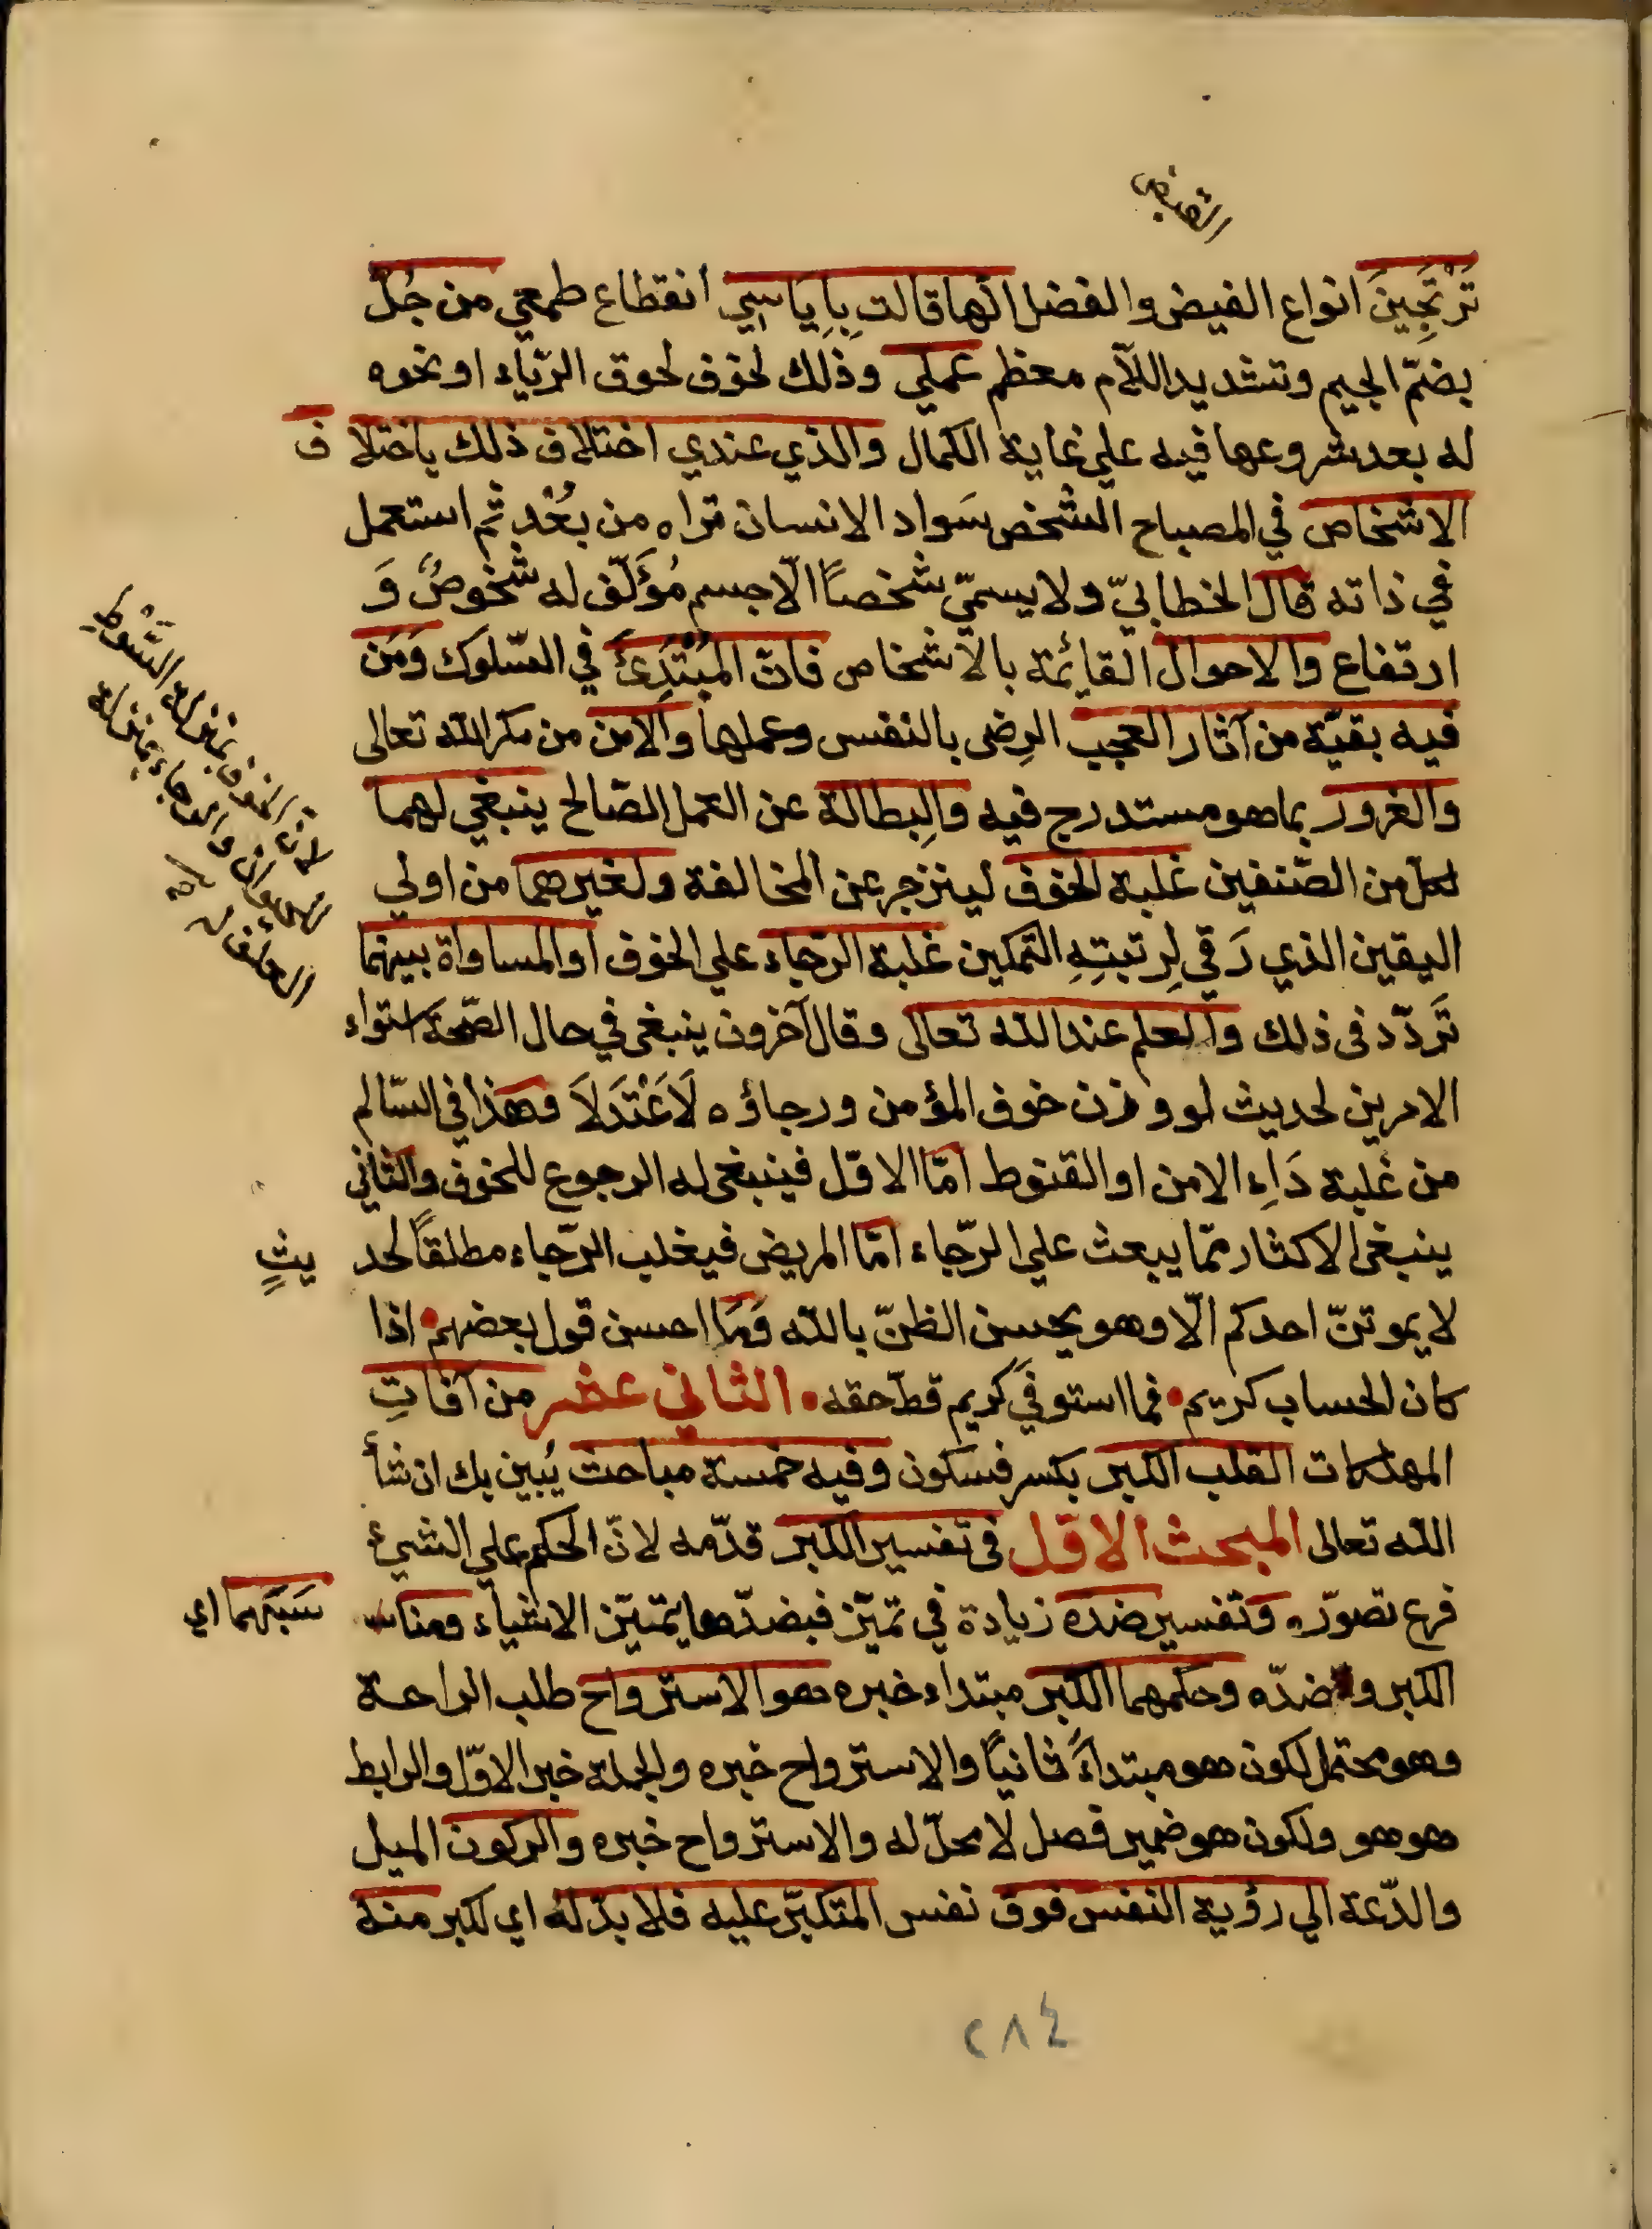 الفياض
تَرْتَجِينَ انواع الفيض والفضل انها قالت بِإِيَاسِي انقطاع طمعي من جُلّ
بضمّ الجيم وتشديد اللآم معظم عملي وذلك لخوف لحوق الريّاء او نحوه
له بعد شروعها فيه علي غاية الكمال والذي عندي اختلاف ذلك باختلا ف
الاشخاص في المصباح الشخص سَواد الانسان تراه من بُعْدٍ ثم استعمل
في ذاته قال الخطابيّ ولا يسميّ شخصاً الّا جسم مُؤَلّف له شُخوصٌ وَ
ارتفاع والاحوال القائمة بالاشخاص فان المُبْتَدِئَ في السّلوك وَمَن
فيه بقيّة من آثار العجب الرِضى بالنفس وعملها والامن من مكر الله تعالى
والغرور بما هو مستدرج فيه والبِطالة عن العمل الصّالح ينبغي لهما
لكل من الصّنفين غلبة الخوف لينزجر عن المخالفة ولغيرهما من اولي
اليقين الذي رَقي لِرتبتِهِ التمكين غلبة الرّجاء علي الخوف او المساواة بينهما
تَردّد في ذلك والعلم عند الله تعالى وقال آخرون ينبغي في حال الصّحة استواء
الامرين لحديث لو وزن خوف المؤمن ورجاؤه لَاَعْتَدَلاَ وهذا في السّالم
من غلبة دَاءِ الامن او القنوط امّا الاوّل فينبغي له الرجوع للخوف والثاني
ينبغي الاكثار ممّا يبعث علي الرّجاء امّا المريض فيغلب الرّجاء مطلقاً لحد يثٍ
لا يموتنّ احدكم الّا وهو يحسن الظنّ بالله وَمَا احسن قول بعضهم • اذا
كان الحساب كريم • فما استوفي كريم قطّ حقه • الثاني عشر من آفاتِ
المهلكات القلب الكبر بكسر فسكون وفيه خمسة مباحث يُبين بك ان شأ
الله تعالى المبحث الاوّل في تفسير الكبر قدّمه لانّ الحكم علي الشيء
فرع تصوّره وتفسير ضده زيادة في تميّز فبضدّها يتميّز الاشياء ومنا سَبَتهما اي
الكبر وضدّه وحكمهما الكبر مبتداء خبره هو الاسترواح طلب الراحة
وهو محتمل لكون هو مبتداءً ثانياً والاسترواح خبره والجملة خبر الاوّل والرابط
هو هو ولكون هو ضمير فصل لا محلّ له والاسترواح خبره والركون الميل
والدّعة الي رؤية النفس فوق نفس المتكبّر عليه فلا بدّ له اي لكبر منه
لانّ الخوف بمنزلة السَّوْط
للحيوان والرجاء بمنزلة
العلف له
٢٨٤